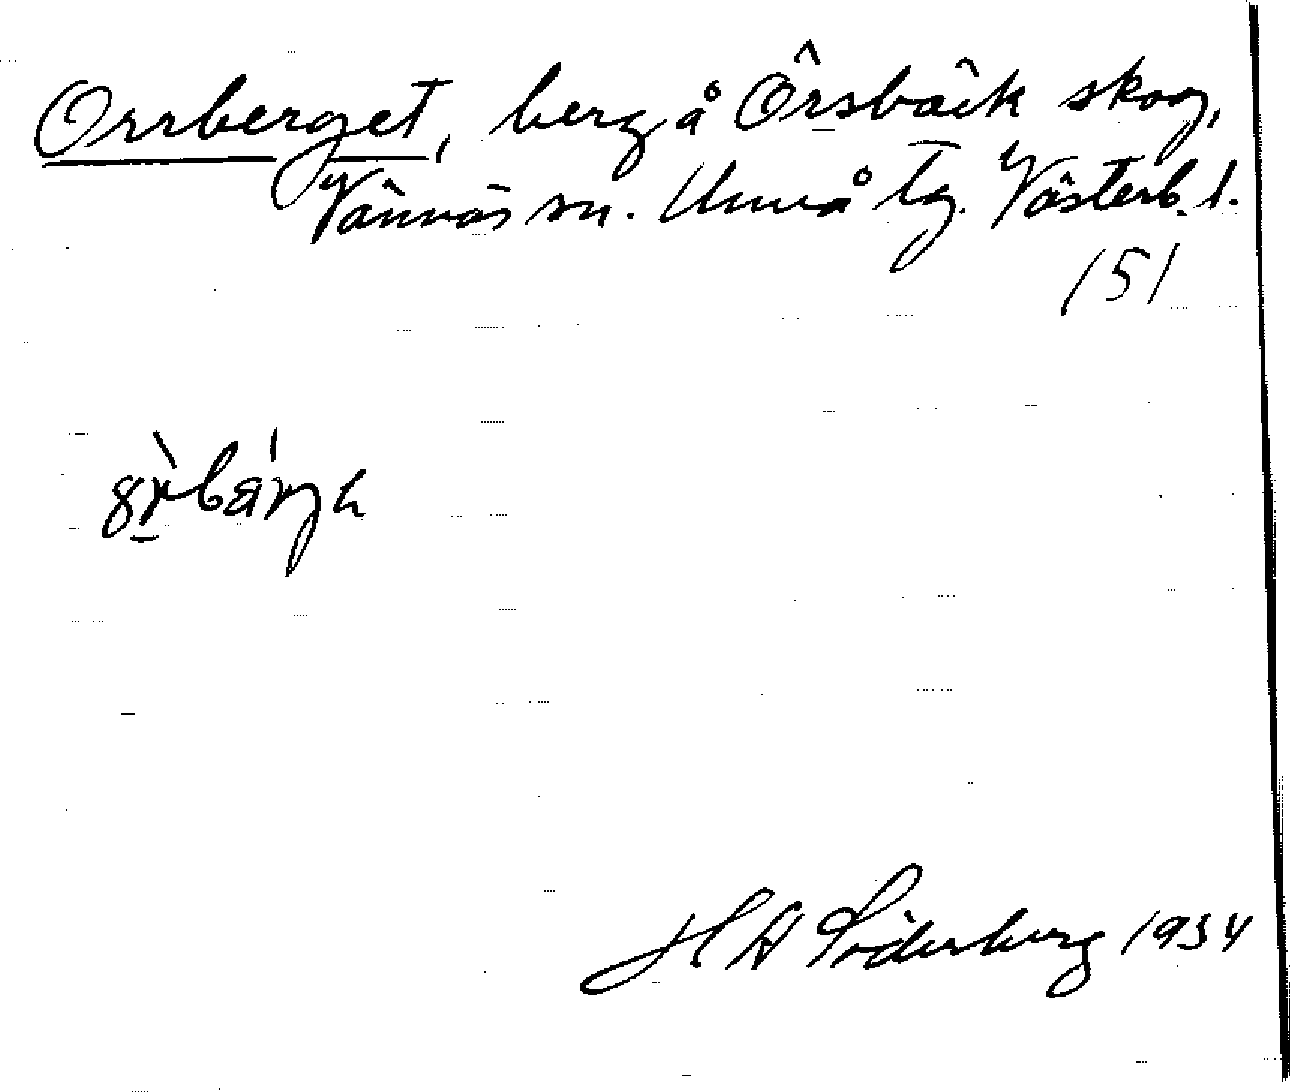 Orrberget, berg å Örsbäck skog,
Vännäs sn. Umeå tg. Västerb. l.
151
H H Söderberg 1934